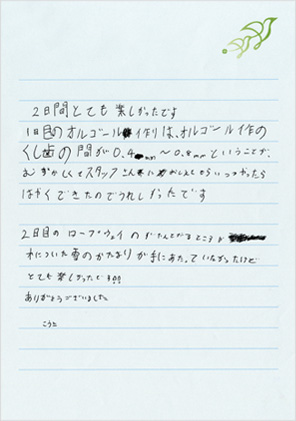 2日間とても楽しかったです
1日目のオルゴール作りは、オルゴール作の
くし歯の間が0.4mm〜0.8mmということが、
むずかしくてスタッフさんに
はやくできたのでうれしかったです
2日目のロープウェイの
木についた雪のかたまりが手にあたっていたかったけど
とても楽しかったです!!
ありがとうございました
こうた